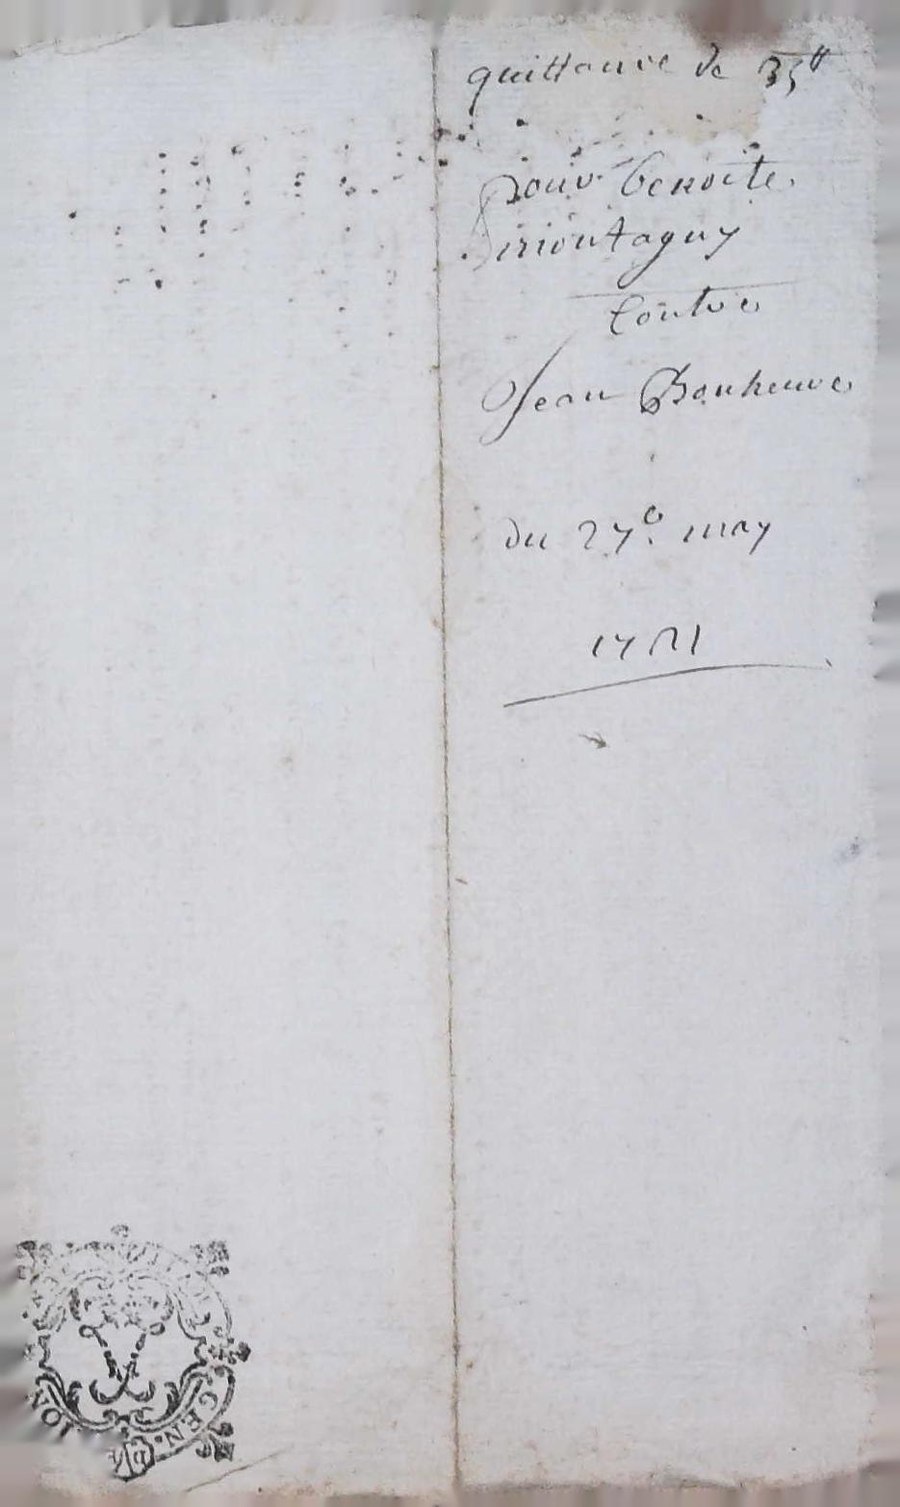 quittance de 35ᵗᵗ
pour benoite
montagny
Contre
Jean Bonheure
du 27e. may
1781
GEN.
ION